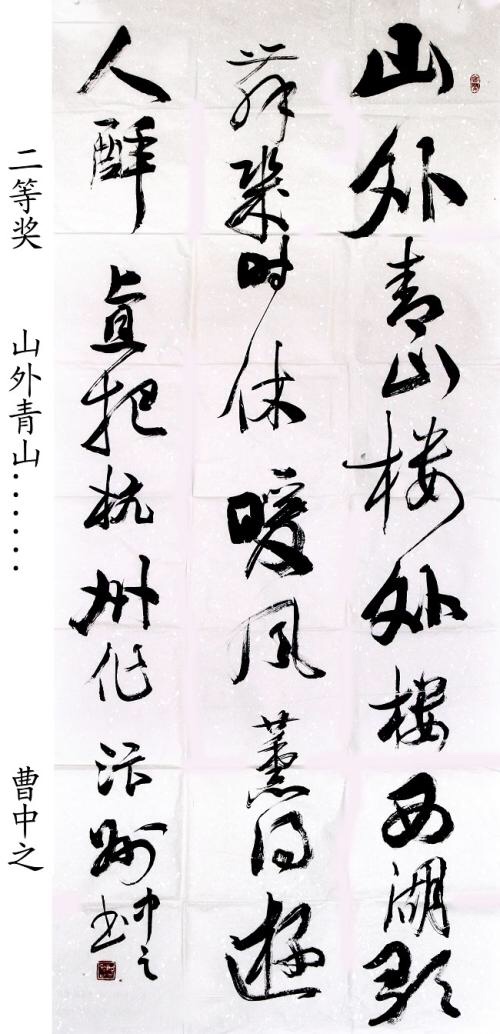 山外青山楼外楼西湖歌
舞幾时休暖风薰得遊
人酔直把杭州作汴州
中之
书
二等奖 山外青山…… 曹中之